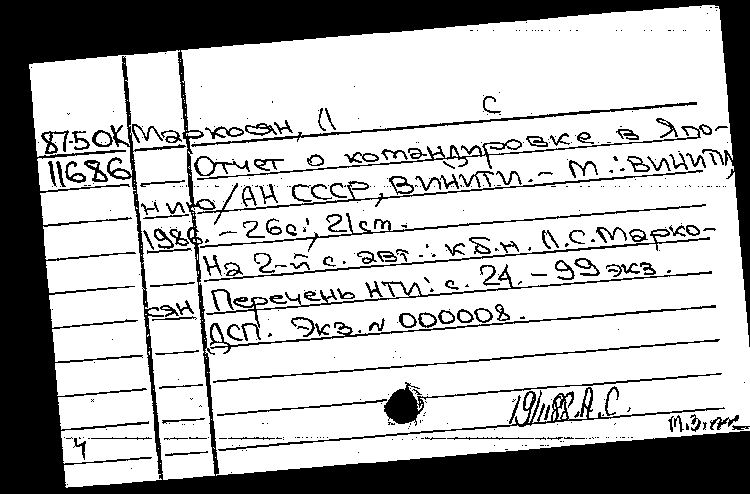 8750К Маркосян, Л С
11686 Отчет о командировке в Япо-
нию/АН СССР, ВИНИТИ.- М.: ВИНИТИ,
1986. - 26с.; 21см.
На 2-й с. авт.: к.б.н. Л.С.Марко-
сян Перечень НТИ: с. 24. - 99 экз.
ДСП. Экз. № 000008.
19/II88 А.С.
4